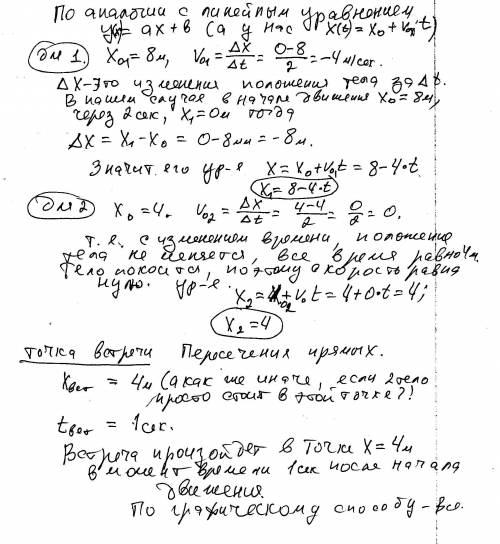 По аналогии с линейным уравнением
y(x) = ax + b (а у нас x(t) = x₀ + v₀ₓt)
для 1. X₀₁ = 8м, V₀₁ = ΔX/Δt = (0-8)/2 = -4 м/сек.
ΔX - это изменения положения тела за Δt.
В нашем случае в начале движения X₀ = 8м,
через 2 сек, X₁ = 0м тогда
ΔX = X₁ - X₀ = 0 - 8м = -8м.
Значит его ур-е X = X₀ + V₀₁t = 8 - 4·t
X₁ = 8 - 4·t
для 2 X₀ = 4. V₀₂ = ΔX/Δt = (4-4)/2 = 0/2 = 0.
т.е. с изменением времени, положение
тела не меняется, все время равно 4м.
Тело покоится, поэтому скорость равна
нулю. ур-е.
X₂ = X₀₂ + V₀t = 4 + 0·t = 4;
X₂ = 4
точка встречи Пересечения прямых.
Xвст = 4м (а как же иначе, если 2 тело
просто стоит в этой точке?!
tвст = 1 сек.
Встреча произойдет в точке X = 4м
в момент времени 1 сек после начала
движения.
По графическому способу - все.